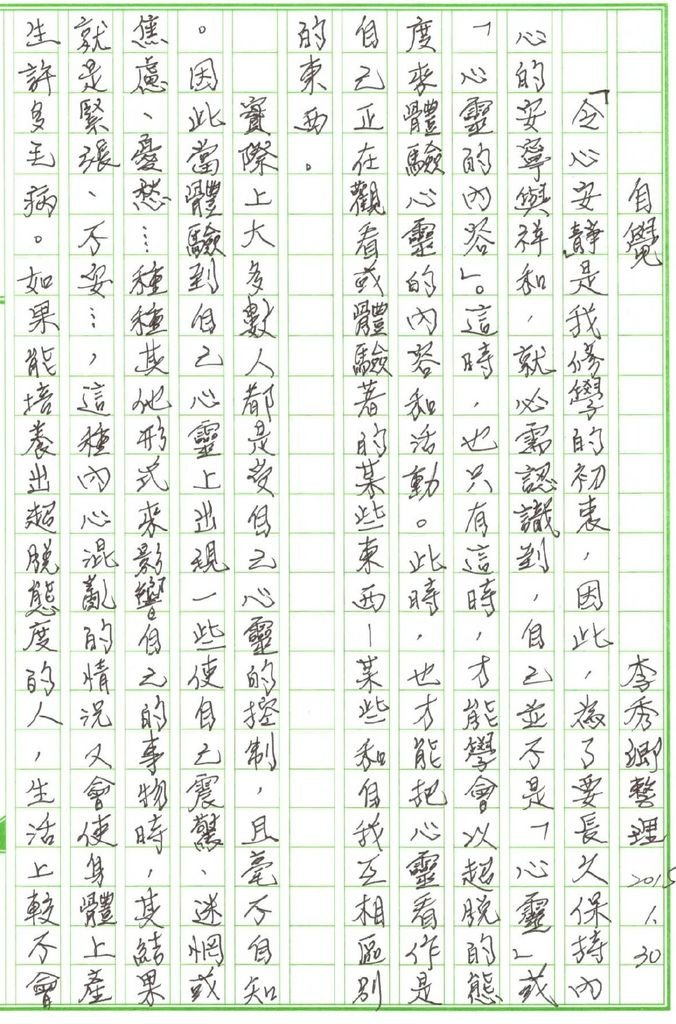 自覺 李秀鄉整理 2015.1.30
「令心安靜」是我修學的初衷，因此，為了要長久保持內
心的安寧與祥和，就必需認識到，自己並不是「心靈」或
「心靈的內容」。這時，也只有這時，才能學會以超脫的態
度來體驗心靈的內容和活動。此時，也才能把心靈看作是
自己正在觀看或體驗著的某些東西—某些和自我互相區別
的東西。
實際上大多數人都是受自己心靈的控制，且毫不自知
。因此當體驗到自己心靈上出現一些使自己震驚、迷惘或
焦慮、憂愁…種種其他形式來影響自己的事物時，其結果
就是緊張、不安…，這種內心混亂的情況又會使身體上產
生許多毛病。如果能培養出超脫態度的人，生活上較不會